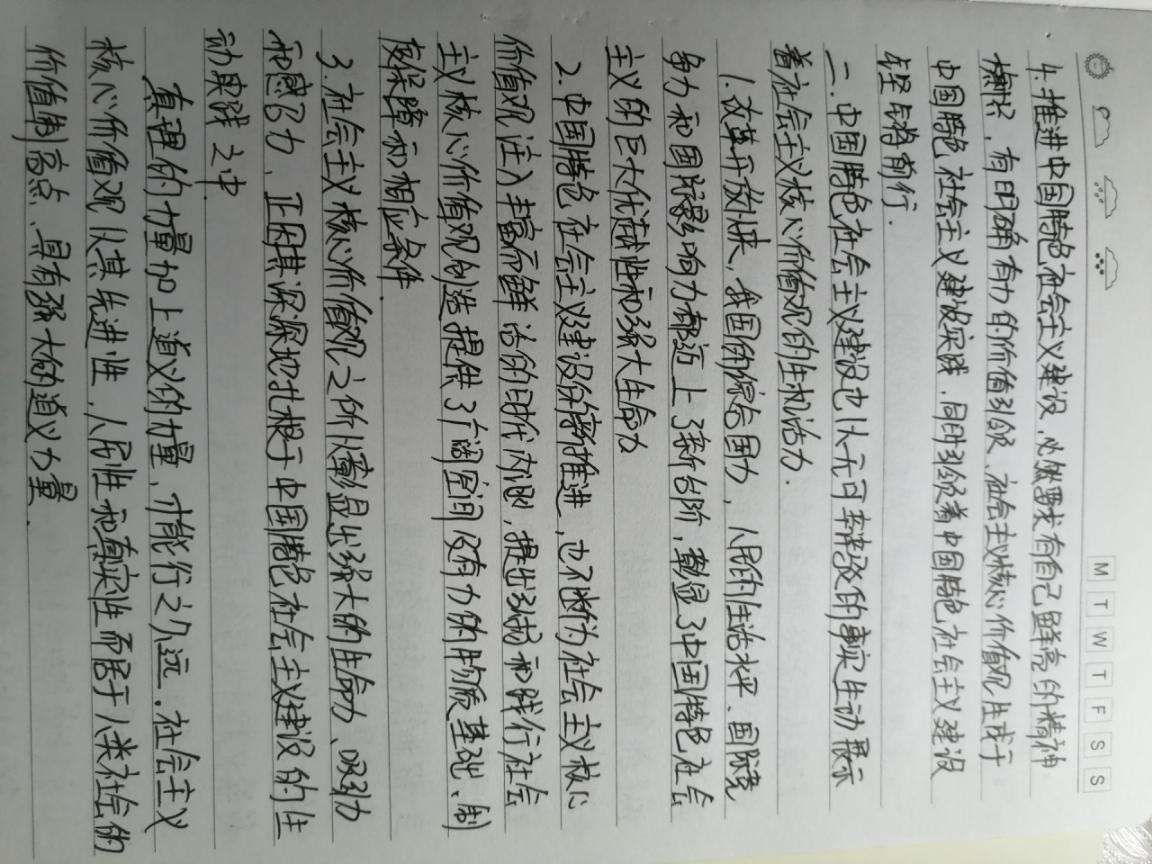 M T W T F S S
4.推进中国特色社会主义建设,必然要求有自己鲜亮的精神
旗帜,有明确有力的价值引领.社会主义核心价值观生成于
中国特色社会主义建设实践.同时引领着中国特色社会主义建设
铿锵前行.
二.中国特色社会主义建设也以无可辩驳的事实生动展示
着社会主义核心价值观的生机活力.
1.改革开放以来,我国的综合国力,人民的生活水平、国际竞
争力和国际影响力都迈上了新台阶,彰显了中国特色社会
主义的巨大优越性和强大生命力
2.中国特色社会主义建设份推进,也不断为社会主义核心
价值观注入丰富而鲜活的时代内涵,提出引战和践行社会
主义核心价值观创造提供了广阔空间及有力的物质基础、制
度保障和相应条件.
3.社会主义核心价值观之所以彰显出强大的生命力、吸引力
和感召力,正因其深深地扎根于中国特色社会主义建设的生
动实践之中.
真理的力量加上道义的力量,才能行之久远.社会主义
核心价值观以其先进性,人民性和真实性而居于人类社会的
价值制高点,具有强大的道义力量.